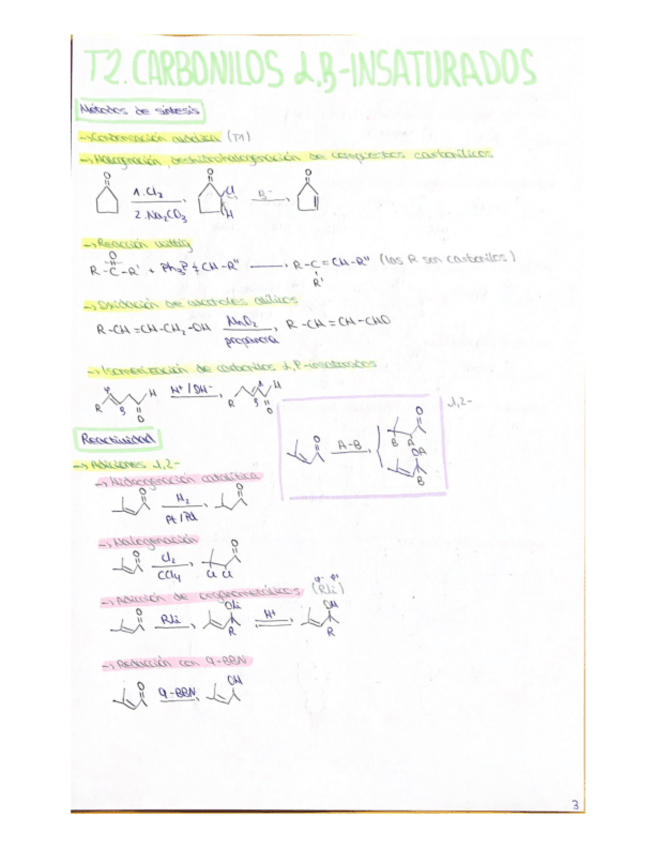 T2. CARBONILOS α,β-INSATURADOS
Métodos de síntesis
→ Condensación aldólica (T1)
→ Halogenación, deshidrohalogenación de compuestos carbonílicos
O O O
1. Cl₂ Cl B⁻
2. Na₂CO₃ H
→ Reacción Wittig
O
R-C-R' + Ph₃P=CH-R'' → R-C=CH-R'' (los R son carbonilos)
R'
→ Oxidación de alcoholes alílicos
R-CH=CH-CH₂-OH MnO₂ R-CH=CH-CHO
propanona
→ Isomerización de carbonilos α,β-insaturados
H H⁺/OH⁻ H
R O R O
1,2-
Reactividad
A-B
O O
B A
OA
B
→ Adiciones 1,2-
→ Hidrogenación catalítica
O H₂ O
Pt/Pd
→ Halogenación
O Cl₂ O
CCl₄ Cl Cl
→ Adición de organometálicos (RLi)
O RLi OLi H⁺ OH
R R
→ Reducción con 9-BBN
O 9-BBN OH
3